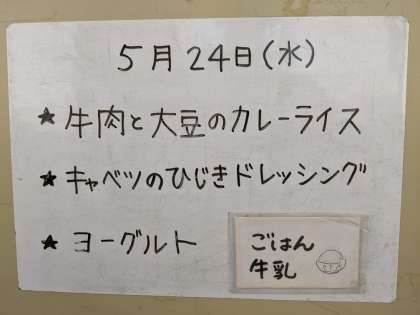 5月24日(水)
★ 牛肉と大豆のカレーライス
★ キャベツのひじきドレッシング
★ ヨーグルト
ごはん
牛乳